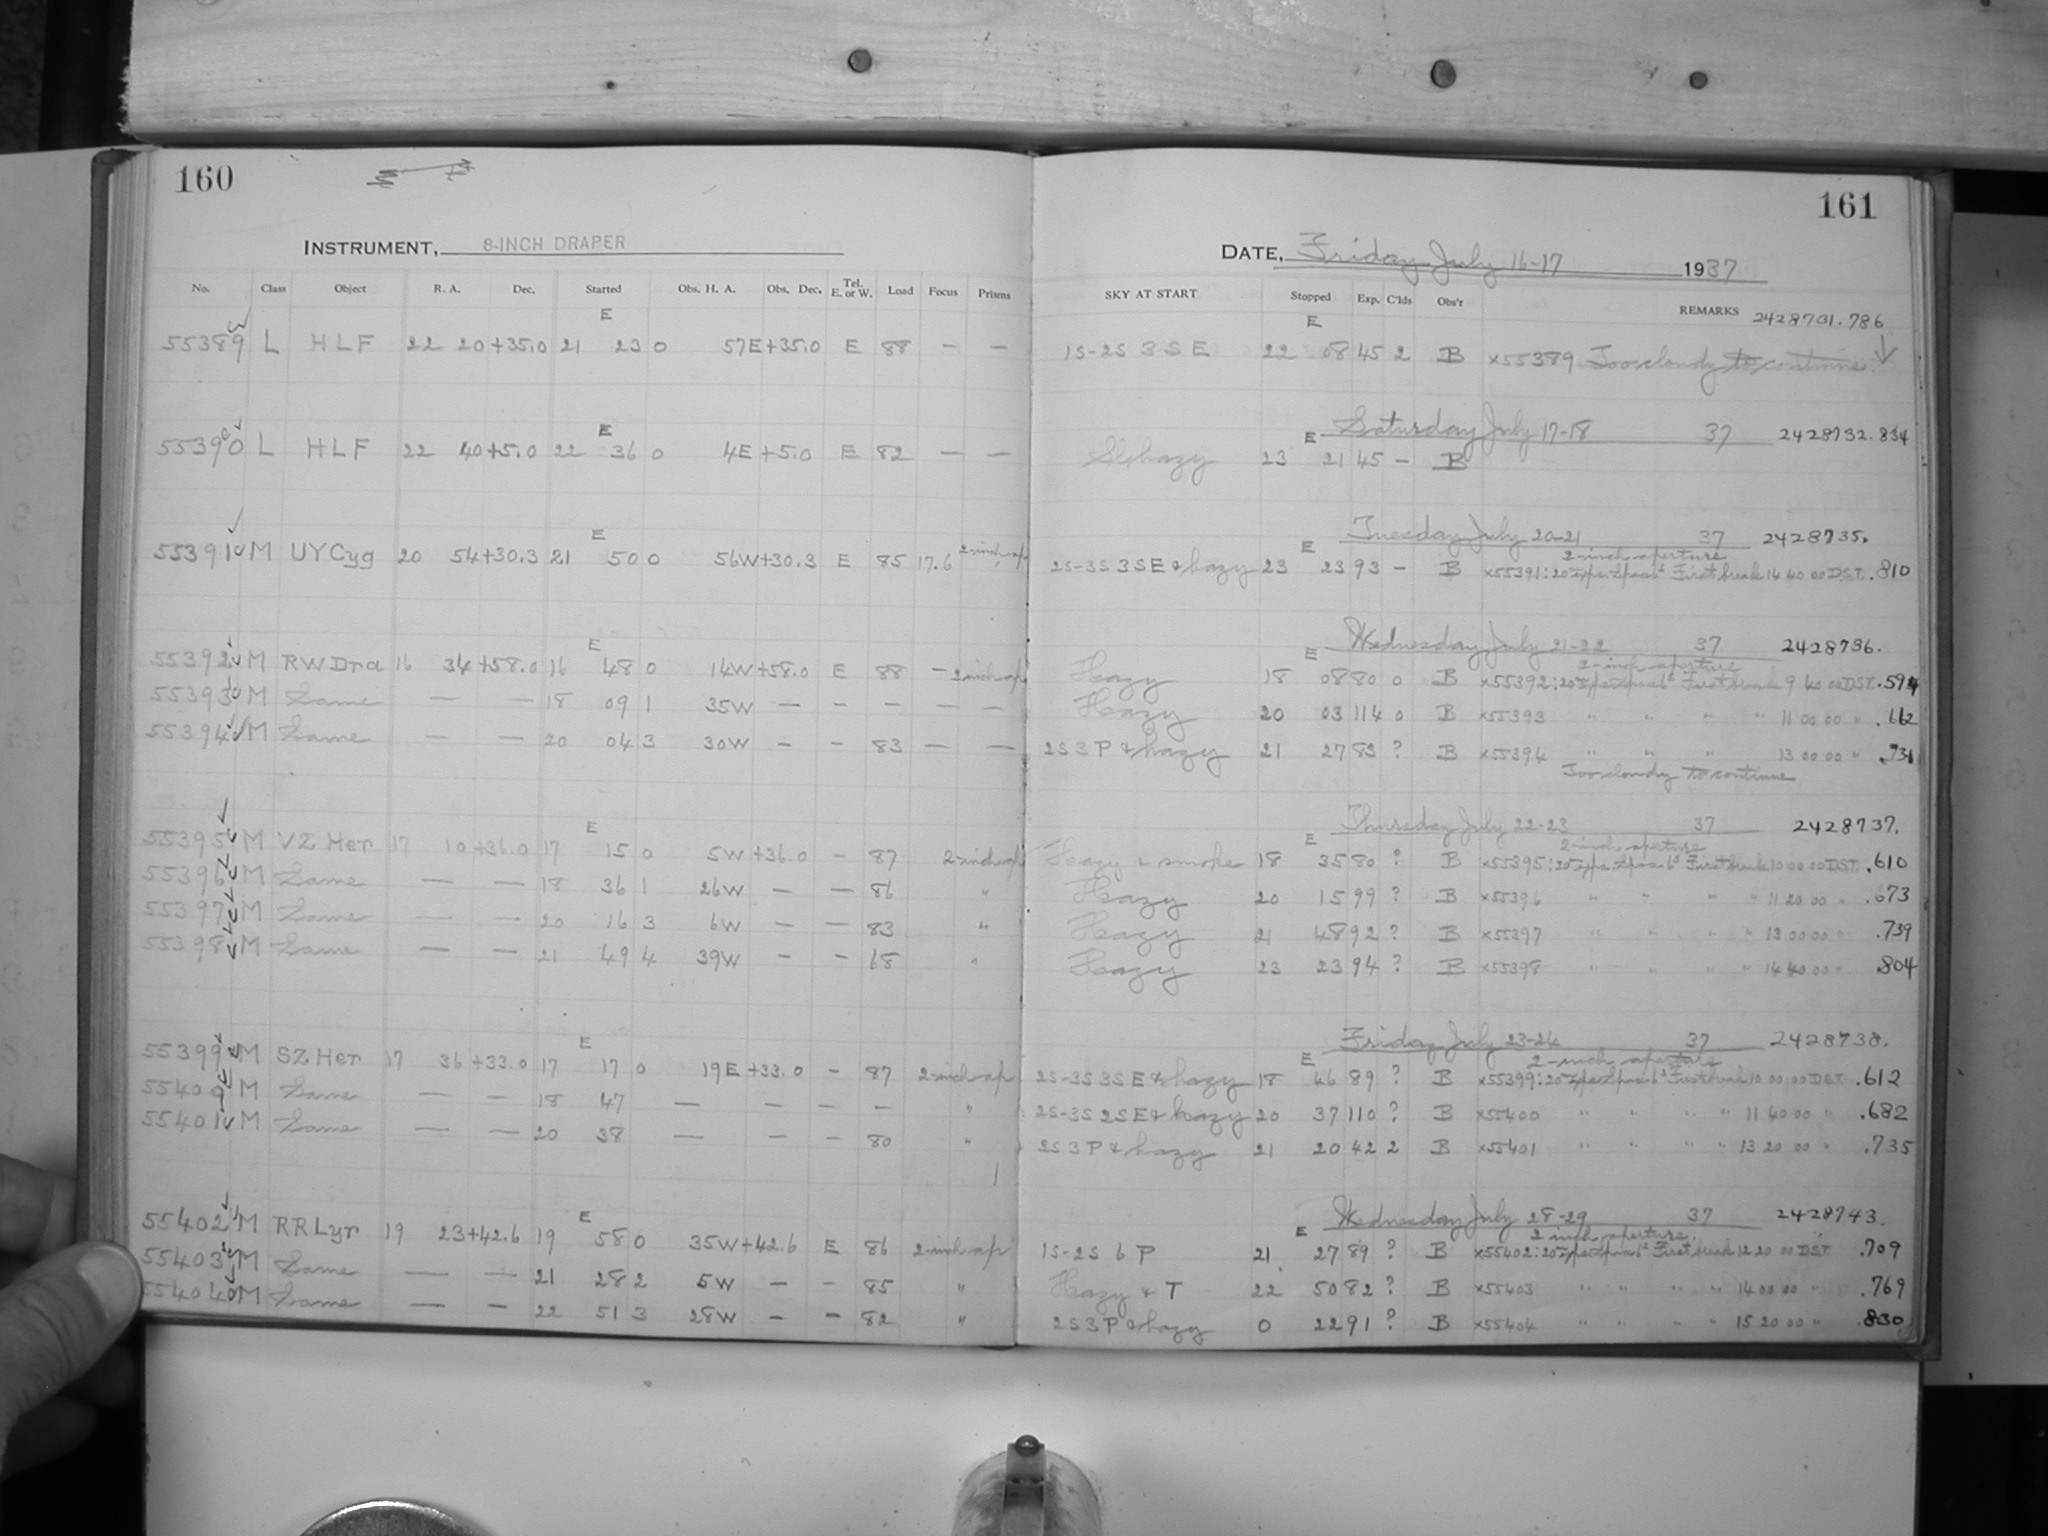 160
INSTRUMENT, 8-INCH DRAPER
No. Class Object R. A. Dec. Started Obs. H. A. Obs. Dec. Tel. E. or W. Load Focus Prisms
E
55389 L HLF 22 20 +35.0 21 23 0 57E +35.0 E 88 — —
E
55390 L HLF 22 40 +5.0 22 36 0 4E +5.0 E 82 — —
E
55391 M UY Cyg 20 54 +30.3 21 50 0 56W +30.3 E 85 17.6 2-inch ap
E
55392 M RW Dra 16 34 +58.0 16 48 0 14W +58.0 E 88 — 2 inch ap
55393 M Same — — 18 09 1 35W — — — — —
55394 M Same — — 20 04 3 30W — — 83 — —
E
55395 M VZ Her 17 10 +36.0 17 15 0 5W +36.0 — 87 2-inch ap
55396 M Same — — 18 36 1 26W — — 86 "
55397 M Same — — 20 16 3 6W — — 83 "
55398 M Same — — 21 49 4 39W — — 68 "
E
55399 M SZ Her 17 36 +33.0 17 17 0 19E +33.0 — 87 2-inch ap
55400 M Same — — 18 47 — — — — "
55401 M Same — — 20 38 — — — 80 "
E
55402 M RR Lyr 19 23 +42.6 19 58 0 35W +42.6 E 86 2-inch ap
55403 M Same — — 21 28 2 5W — — 85 "
55404 M Same — — 22 51 3 28W — — 82 "
161
DATE, Friday July 16-17 1937
SKY AT START Stopped Exp. C'lds Obs'r REMARKS 2428731.786
E
1S-2S 3 S E 22 08 45 2 B x55389 Too cloudy to continue
Saturday July 17-18 37 2428732.834
E
Sl hazy 23 21 45 — B
Tuesday July 20-21 37 2428735.
E 2-inch aperture
2S-3S 3SE & hazy 23 23 93 — B x55391: 20 exps. Space 6s First break 14 40 00 D.S.T. .810
Wednesday July 21-22 37 2428736.
E 2-inch aperture
Hazy 18 08 80 0 B x55392: 20 exps. Space 6s First break 9 40 00 DST. .594
Hazy 20 03 114 0 B x55393 " " " " 11 00 00 " .662
2S 3 P & hazy 21 27 83 ? B x55394 " " " 13 00 00 " .731
Too cloudy to continue
Thursday July 22-23 37 2428737.
E 2-inch aperture
Hazy & smoke 18 35 80 ? B x55395: 20 exps. Space 6s First break 10 00 00 DST. .610
Hazy 20 15 99 ? B x55396 " " " " 11 20 00 " .673
Hazy 21 48 92 ? B x55397 " " " " 13 00 00 " .739
Hazy 23 23 94 ? B x55398 " " " " 14 40 00 " .804
Friday July 23-24 37 2428738.
E 2-inch aperture
2S-3S 3S E & hazy 18 46 89 ? B x55399: 20 exps. Space 6s First break 10 00 00 DST .612
2S-3S 2S E & hazy 20 37 110 ? B x55400 " " " " 11 40 00 " .682
2S 3 P & hazy 21 20 42 2 B x55401 " " " " 13 20 00 " .735
Wednesday July 28-29 37 2428743.
E 2 inch aperture.
1S-2S 6 P 21 27 89 ? B x55402: 20 exps. Space 6s First break 12 20 00 DST. .709
Hazy & T 22 50 82 ? B x55403 " " " " 14 00 00 " .769
2S 3 P & hazy 0 22 91 ? B x55404 " " " " 15 20 00 " .830